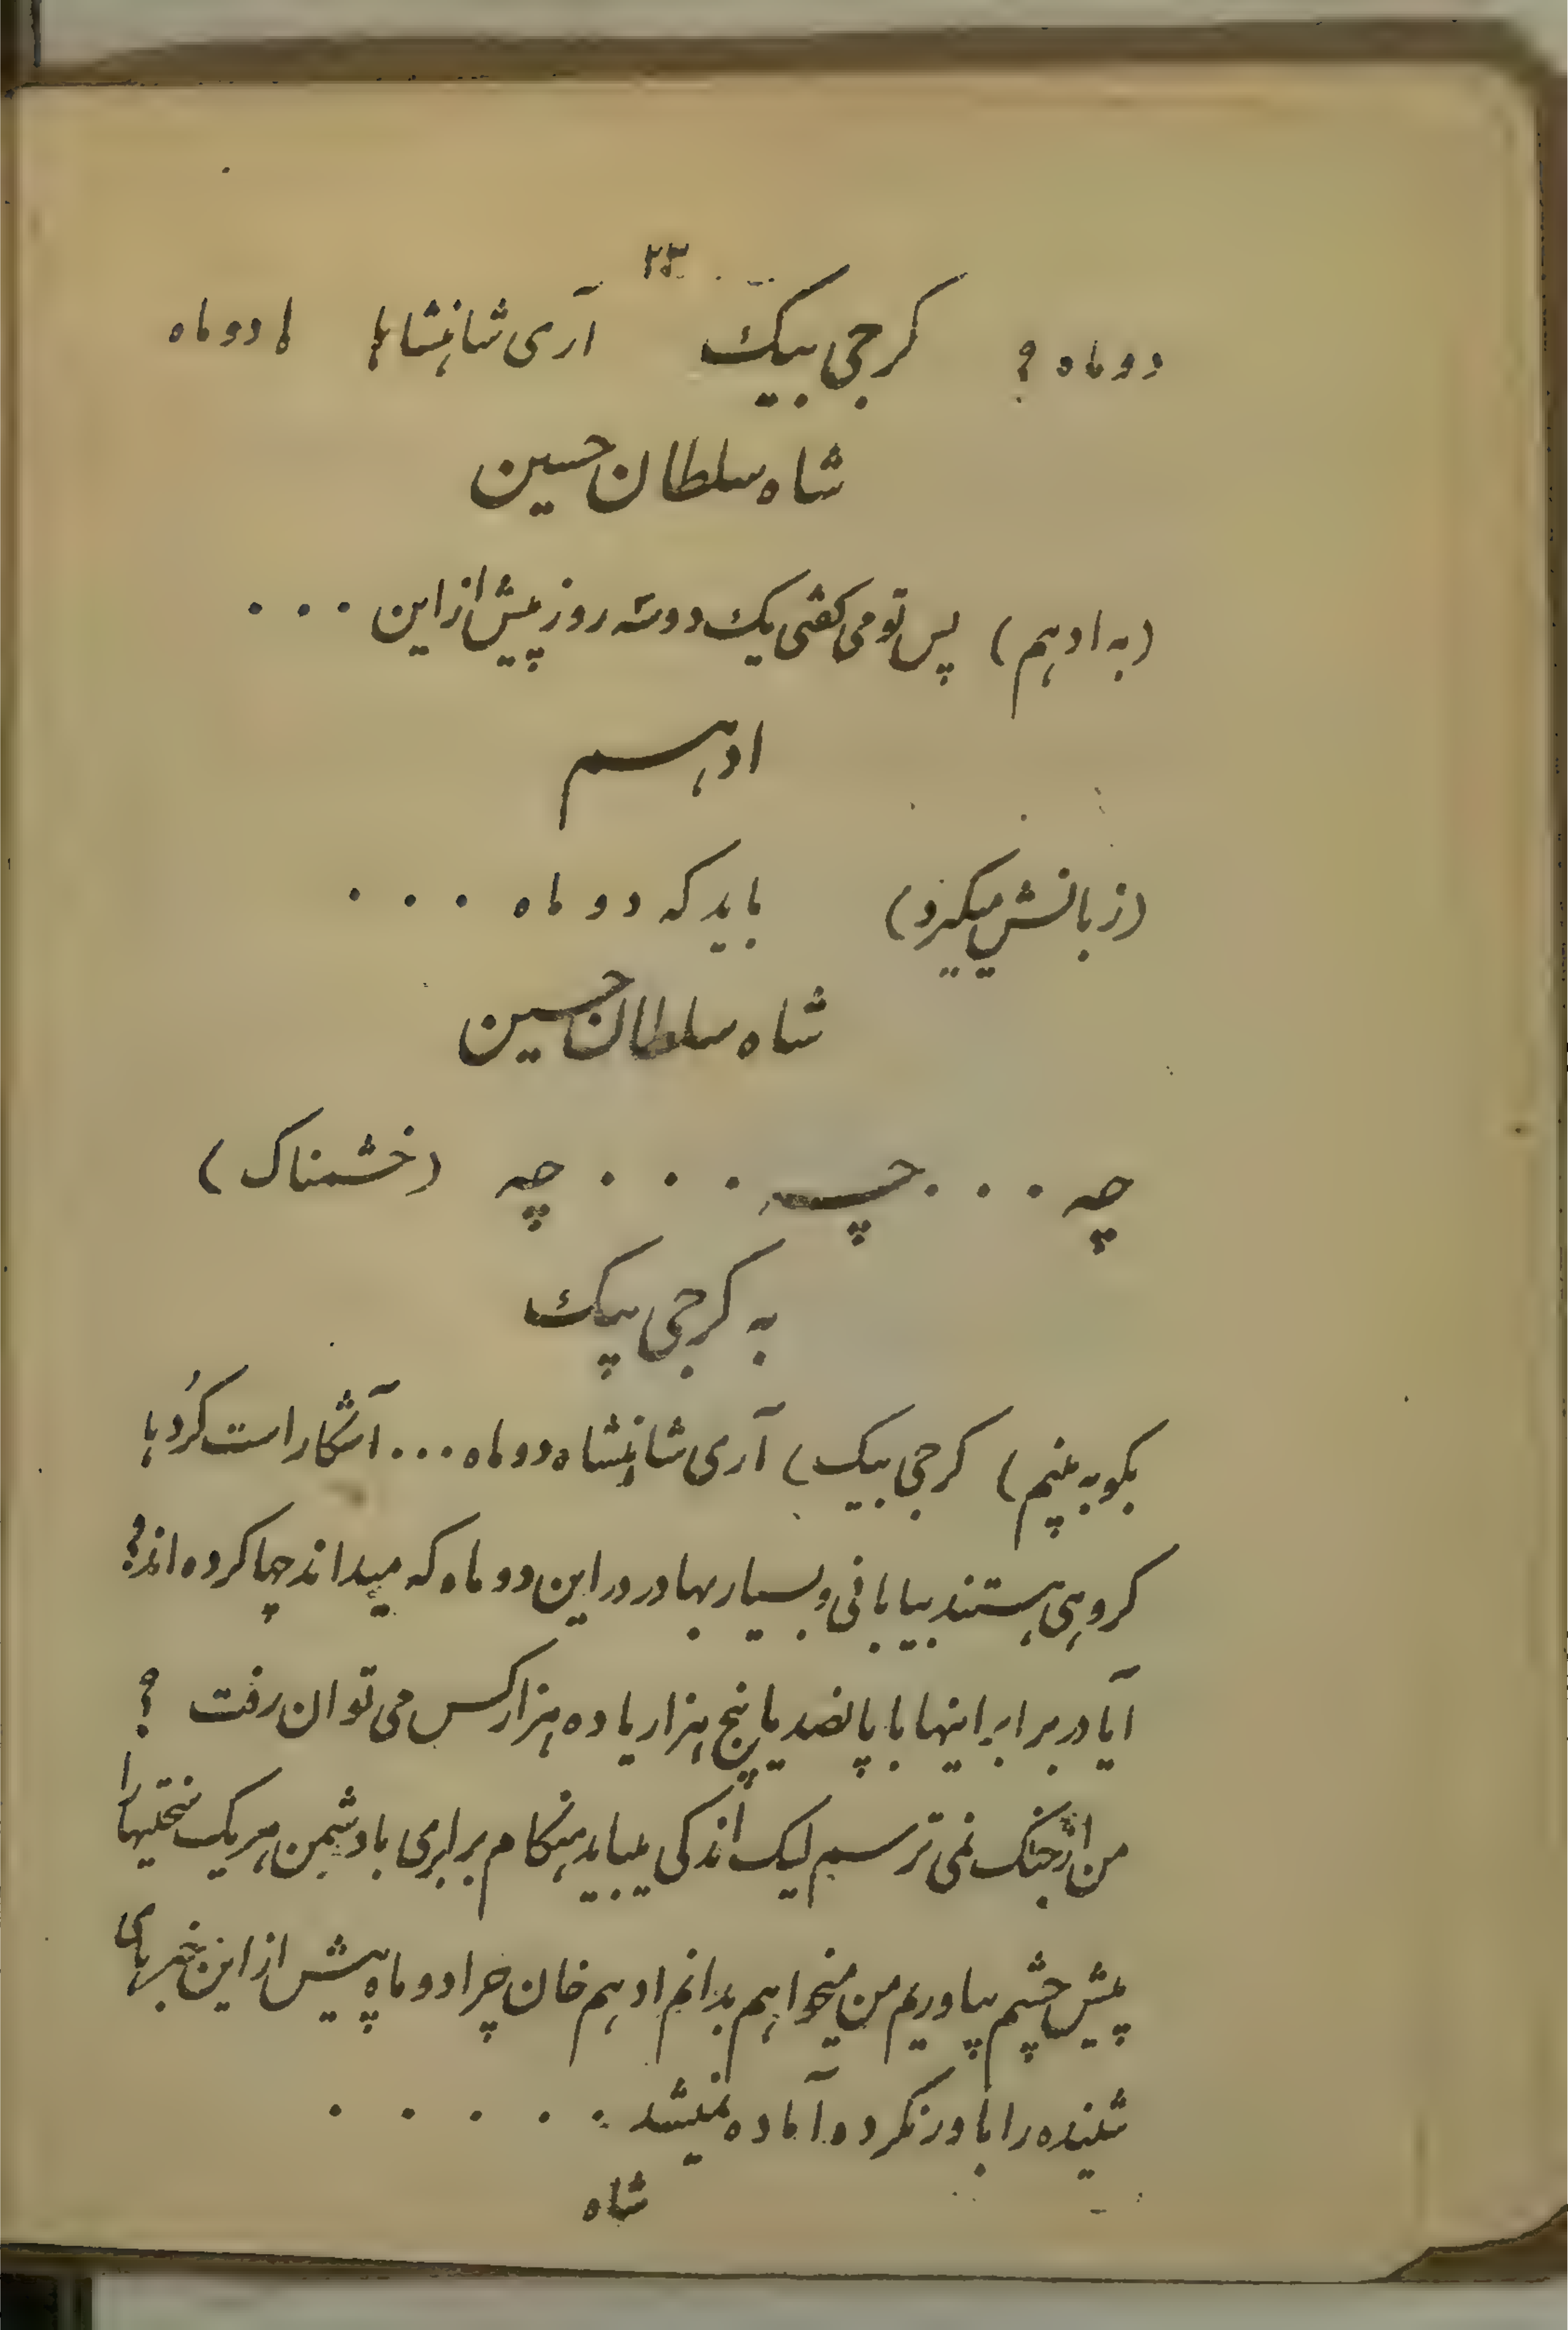 ۲۳
دو ماه ؟ کرجی بیک آری شاهنشاها ها دو ماه
شاه سلطان حسین
(به ادهم) پس تو می کفتی یک دو سه روز پیش از این . . .
ادهم
(زبانش میکیرد) باید که دو ماه . . .
شاه سلطان حسین
چه . . . چه . . . چه (خشمناک)
به کرجی پیک
بکو به بینم) کرجی بیک) آری شاهنشاه دو ماه . . . آشکار است کُردها
کروهی هستند بیابانی و بسیار بهادر در این دو ماه که میداند چها کرده اند؟
آیا در برابر اینها با پانصد یا پنج هزار یا ده هزار کس می توان رفت ؟
من از جنک نمی ترسم لیک اندکی میباید هنکام برابری با دشمن هریک سختیها را
پیش چشم بیاوریم من میخواهم بدانم ادهم خان چرا دو ماه پیش از این خبرهای
شنیده را باور نکرده آماده نمیشد . . . . .
شاه